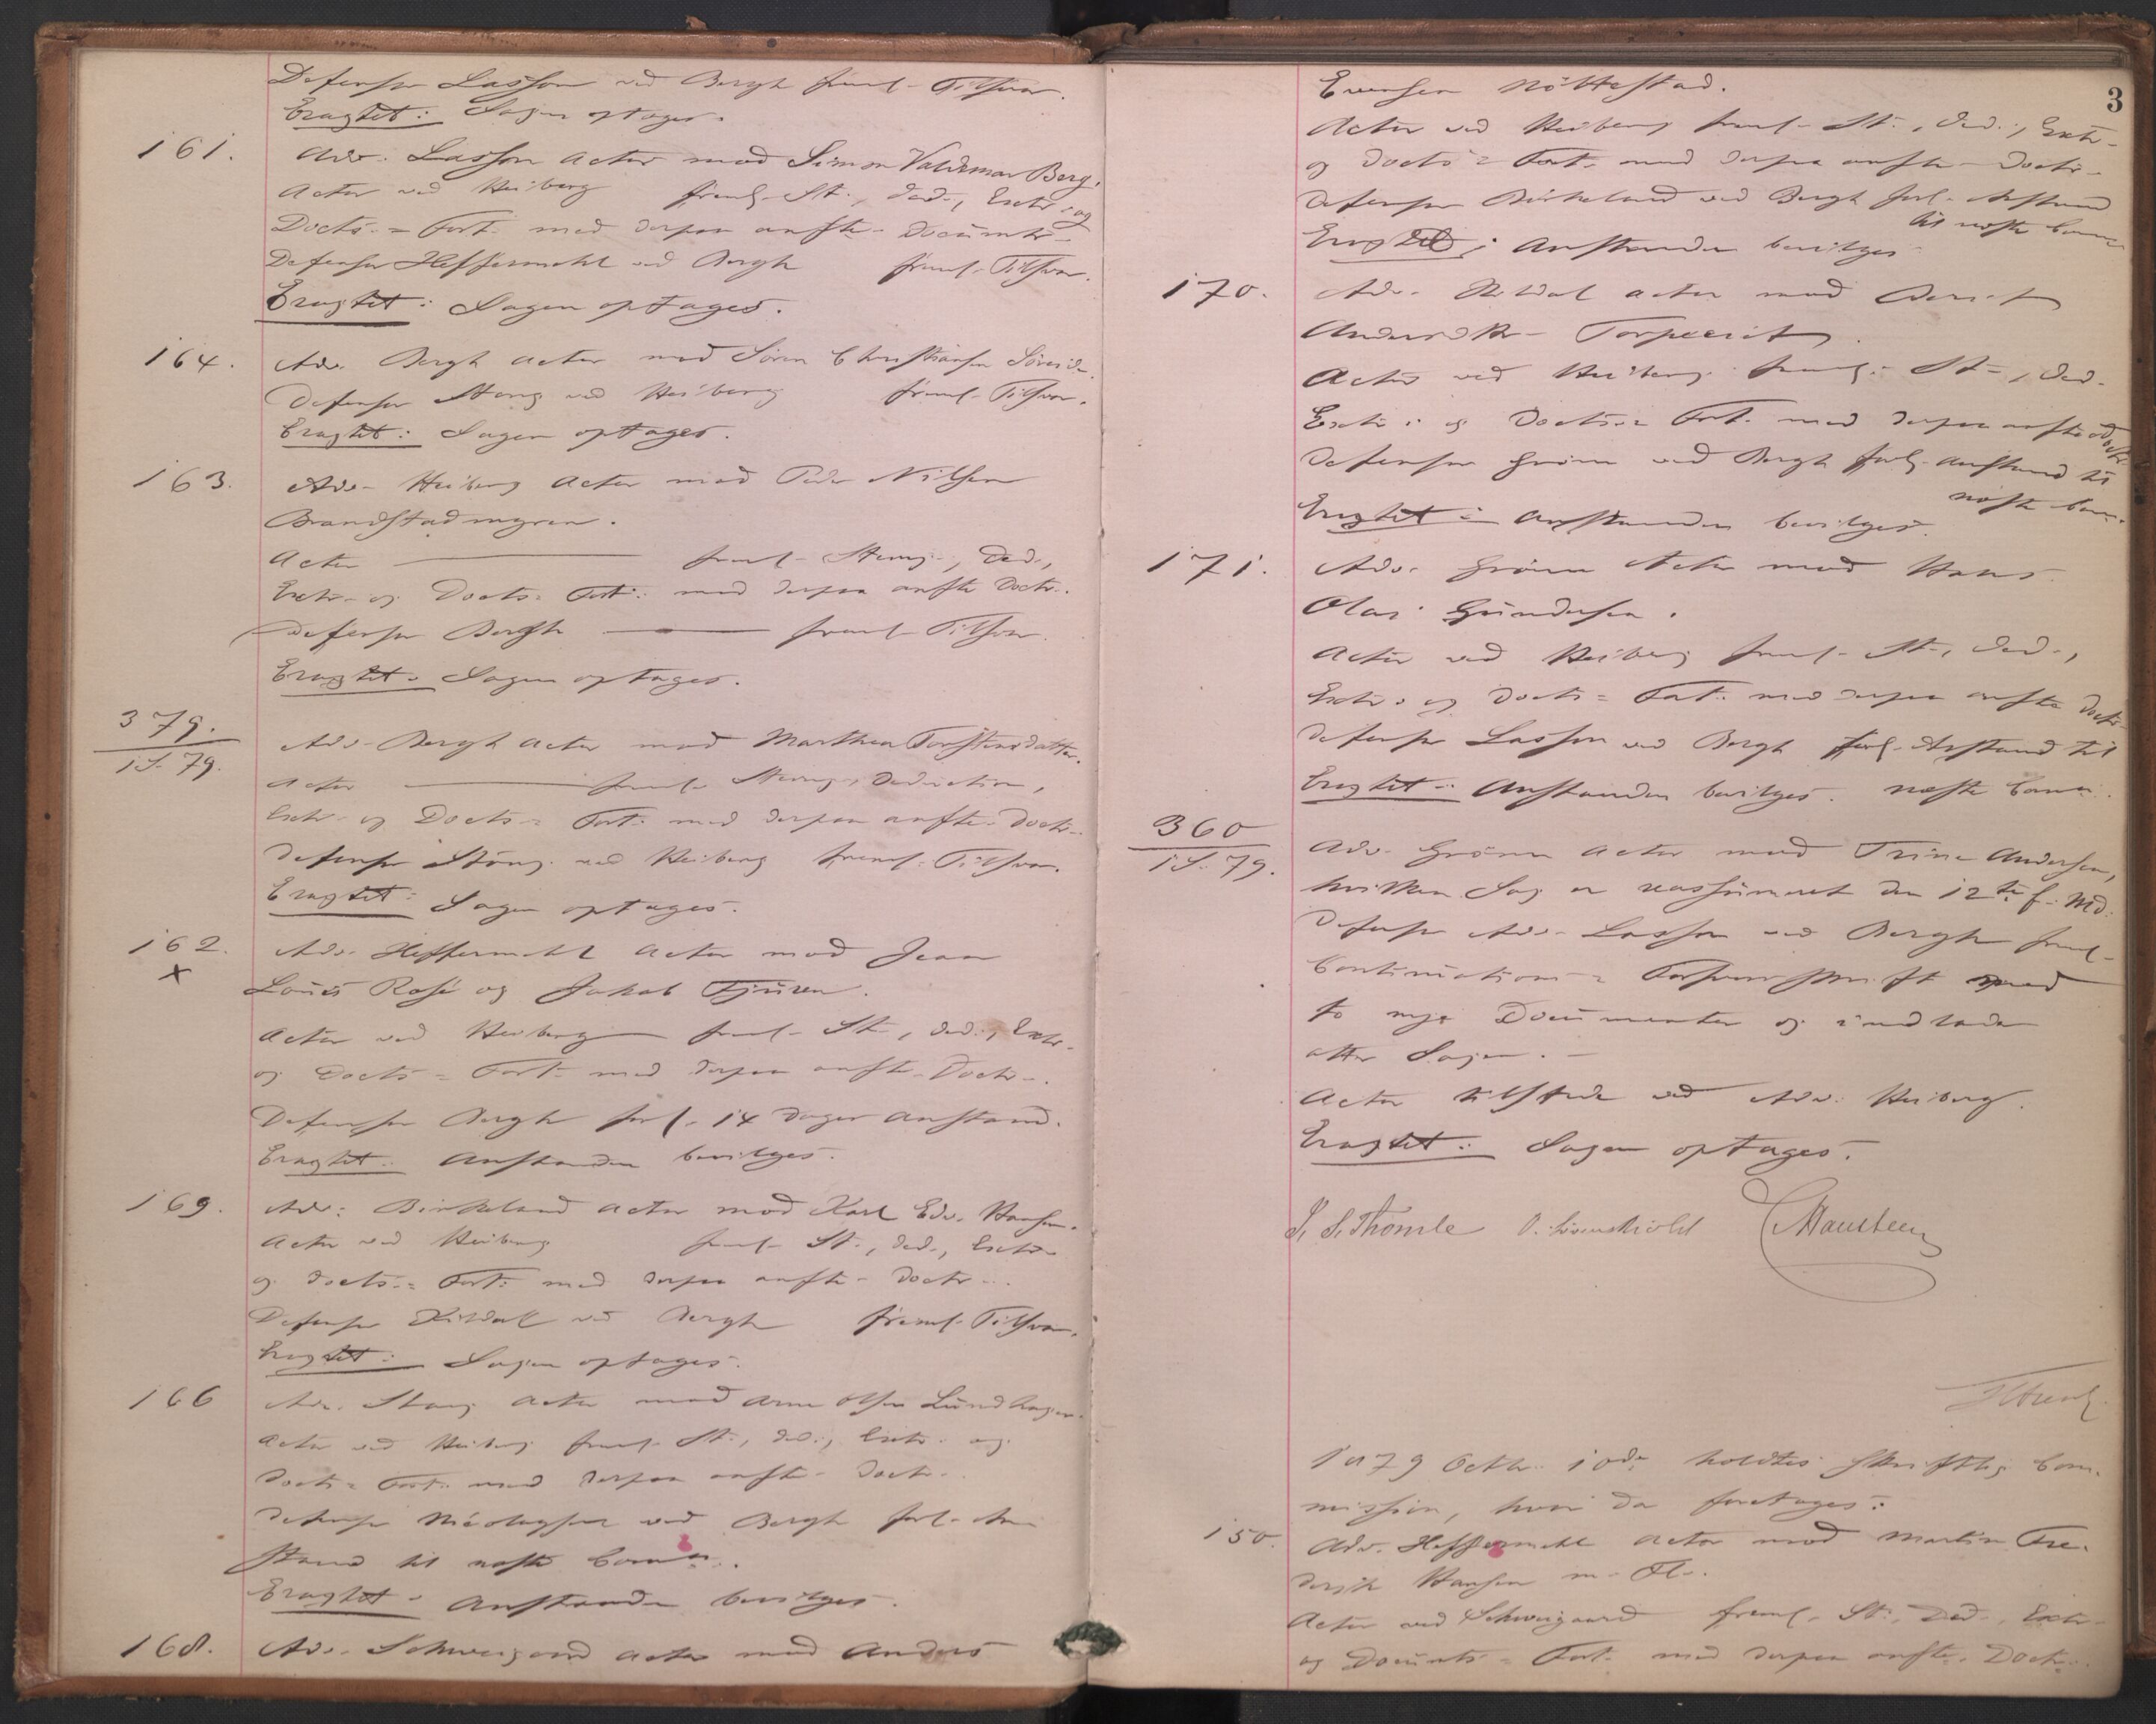 Defensor Lasson ved Bergh freml. Tilsvar.
Eragtet: Sagen optages.
161. Adv. Lasson Actor mod Simon Valdemar Berg.
Actor ved Heiberg freml. St., Ded., Extr. og
Docts.= Fort. med derpaa anfte. Documtr.
Defensor Heffermehl ved Bergh freml. Tilsvar.
Eragtet: Sagen optages.
164. Adv. Bergh Actor mod Søren Christiansen
Defensor Stang ved Heiberg freml. Tilsvar.
Eragtet: Sagen optages.
163. Adv. Heiberg Actor mod Peder Nilsen
Brandstadmyren.
Actor freml. Stevng., Ded.,
Extr. og Docts.= Fort. med derpaa anfte Doctr.
Defensor Bergh freml. Tilsvar.
Eragtet: Sagen optages.
379.
1 S. 79.
Adv. Bergh Actor mod Marthea Torstensdatter.
Actor freml. Stevng., Deduction,
Extr. og Docts.= Fort. med derpaa anfte. Doctr.
Defensor Stang ved Heiberg freml. Tilsvar.
Eragtet: Sagen optages.
162. Adv. Heffermehl Actor mod Jean
x
Louis Rosé og Jakob Fjuren.
Actor ved Heiberg freml. St., Ded., Extr.
og Docts.= Fort. med derpaa anfte. Doctr.
Defensor Bergh forl. 14 Dages Anstand.
Eragtet: Anstanden bevilges.
169. Adv. Birkeland Actor mod Karl Edv. Hansen.
Actor ved Heiberg freml. St., Ded., Extr.
og Docts.= Fort. med derpaa anfte. Doctr.
Defensor Kildal ved Bergh freml. Tilsvar.
Eragtet: Sagen optages.
166 Adv. Stang Actor mod Arne Olsen Lundhagen.
Actor ved Heiberg freml. St., Ded., Extr. og
Docts.= Fort. med derpaa anfte. Doctr.
Defensor Nicolaysen ved Bergh forl. An-
stand til næste Comm.
Eragtet: Anstanden bevilges.
168. Adv. Schweigaard Actor mod Anders
3
Evensen Nøttestad.
Actor ved Heiberg freml. St., Ded., Extr.
og Docts.= Fort. med derpaa anfte. Doctr.
Defensor Birkeland ved Bergh forl. Anstand
til næste Comm.
Eragtet: Anstanden bevilges.
170. Adv. Kildal Actor mod Berit
Andersdtr. Torpeeit.
Actor ved Heiberg freml. St., Ded.
Extr. og Docts.= Fort. med derpaa anfte Doctr.
Defensor Grönn ved Bergh forl. Anstand til
næste Comm.
Eragtet: Anstanden bevilges.
171. Adv. Grönn Actor mod Hans
Olai Gundersen.
Actor ved Heiberg freml. St., Ded.,
Extr. og Docts.= Fort. med derpaa anfte Doctr.
Defensor Lasson ved Bergh forl. Anstand til
Eragtet: Anstanden bevilges. næste Comm.
360
1 S. 79.
Adv. Grönn Actor mod Trine Andersen,
hvilken Sag er reassumeret den 12te f. Md.
Defensor Adv. Lasson ved Bergh freml.
Continuations= Forsvarsskrift med
to nye Documenter og indlader
atter Sagen.
Actor tilstede ved Adv. Heiberg.
Eragtet: Sagen optages.
J. S. Thomle O. Løvenskiold CHansteen
1879 Octbr. 10de holdtes skriftlig Com-
mission, hvori da foretages:
150. Adv. Heffermehl Actor mod Martin Fre-
derik Hansen m. Fl.
Actor ved Schweigaard freml. St., Ded., Extr.
og Docunts.= Fort. med derpaa anfte. Doctr.